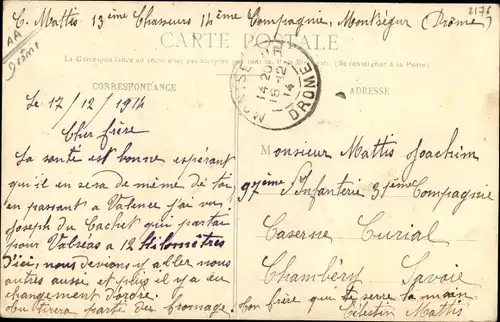 C. Mattis 13ème Chasseurs 14ème Compagnie, Montségur (Drôme)
2176
AA
Drôme
CARTE POSTALE
La Correspondance au recto n'est pas
(Se renseigner à la Poste)
CORRESPONDANCE
ADRESSE
14 20
18-12
14
DROME
Le 17/12/1914
Cher frère
La santé est bonne espérant
qu'il en sera de même de toi,
en passant a Valence j'ai vu
Joseph du Cachet qui partai
pour Valréas a 12 Kilomètres
D'ici, nous devions y aller nous
autres aussi et puis il y a eu
changement d'ordre.
tirera parti des fromage.
Monsieur Mattis Joachim
97ème d'Infanterie 31ème Compagnie
Caserne Curial
Chambéry Savoie
Ton frère qui te serre la main
Célestin Mattis